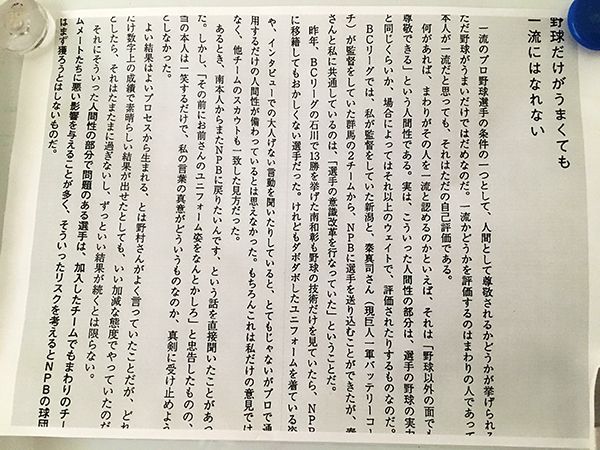 野球だけがうまくても
一流にはなれない
一流のプロ野球選手の条件の一つとして、人間として尊敬されるかどうかが挙げられる
ただ野球がうまいだけではだめなのだ。一流かどうかを評価するのはまわりの人であって
本人が一流だと思っても、それはただの自己評価である。
何があれば、まわりがその人を一流と認めるのかといえば、それは「野球以外の面でも
尊敬できる」という人間性である。実は、こういった人間性の部分は、選手の野球の実力
と同じぐらいか、場合によってはそれ以上のウェイトで、評価されたりするものなのだ。
BCリーグでは、私が監督をしていた新潟と、秦真司さん（現巨人一軍バッテリーコー
チ）が監督をしていた群馬の2チームから、NPBに選手を送り込むことができたが、秦
さんと私に共通しているのは、「選手の意識改革を行なっていた」ということだ。
昨年、BCリーグの石川で13勝を挙げた南和彰も野球の技術だけを見ていたら、NPB
に移籍してもおかしくない選手だった。けれどもダボダボしたユニフォームを着ている姿
や、インタビューでの大人げない言動を聞いたりしていると、とてもじゃないがプロで通
用するだけの人間性が備わっているとは思えなかった。もちろんこれは私だけの意見では
なく、他チームのスカウトも一致した見方だった。
あるとき、南本人からまたNPBに戻りたいんです、という話を直接聞いたことがあっ
た。しかし、「その前にお前さんのユニフォーム姿をなんとかしろ」と忠告したものの、
当の本人は一笑するだけで、私の言葉の真意がどういうものなのか、真剣に受け止めよう
としなかった。
よい結果はよいプロセスから生まれる、とは野村さんがよく言っていたことだが、どれ
だけ数字上の成績で素晴らしい結果が出せたとしても、いい加減な態度でやっていたのだ
としたら、それはたまたまに過ぎないし、ずっといい結果が続くとは限らない。
それにそういった人間性の部分で問題のある選手は、加入したチームでもまわりのチー
ムメートたちに悪い影響を与えることが多く、そういったリスクを考えるとNPBの球団
はまず獲ろうとはしないものだ。